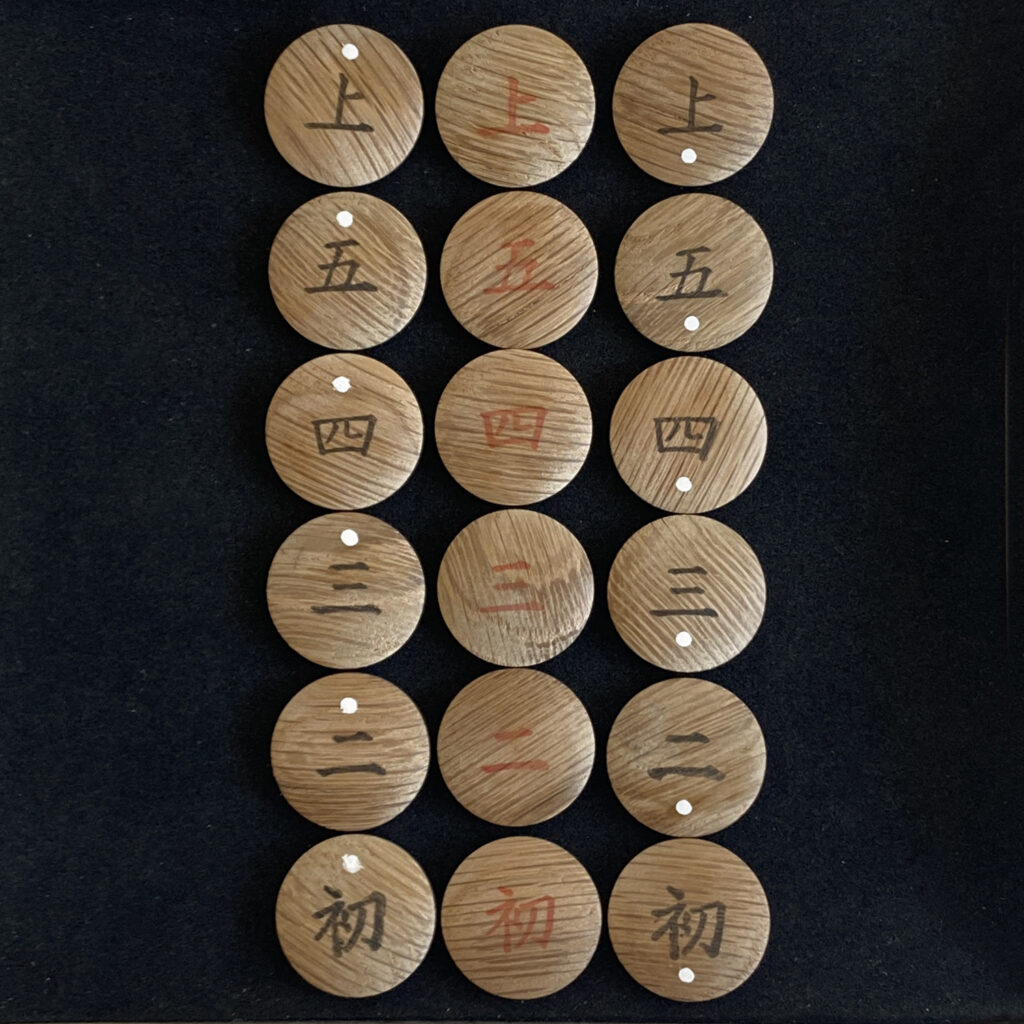 上 上 上
五 五 五
四 四 四
三 三 三
二 二 二
初 初 初